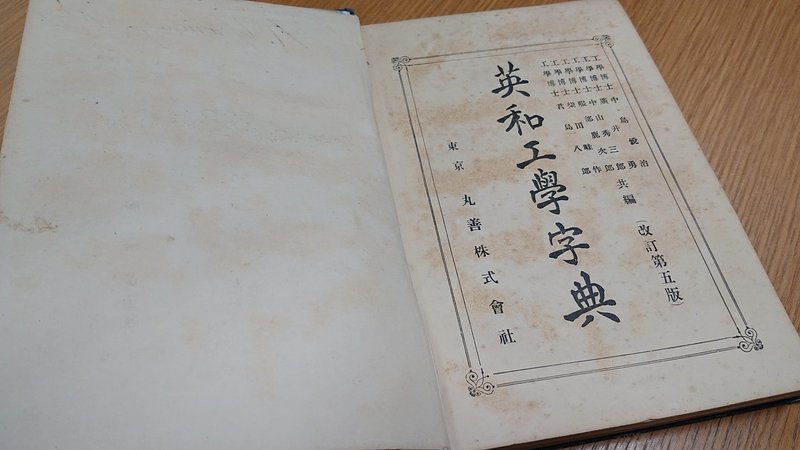 工學博士 中島鋭治
工學博士 廣井勇
工學博士 中山秀三郎
工學博士 服部鹿次郎
工學博士 柴田畦作
工學博士 君島八郎
共編
(改訂第五版)
英和工學字典
東京 丸善株式會社